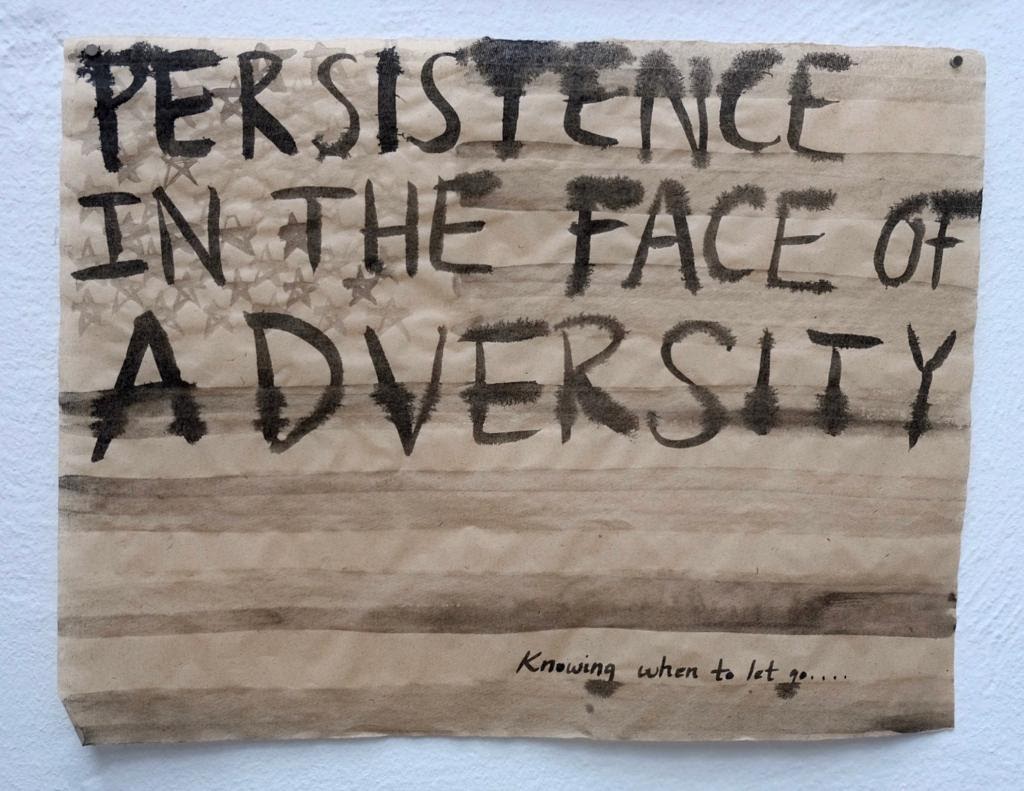 PERSISTENCE
IN THE FACE OF
ADVERSITY
Knowing when to let go.....